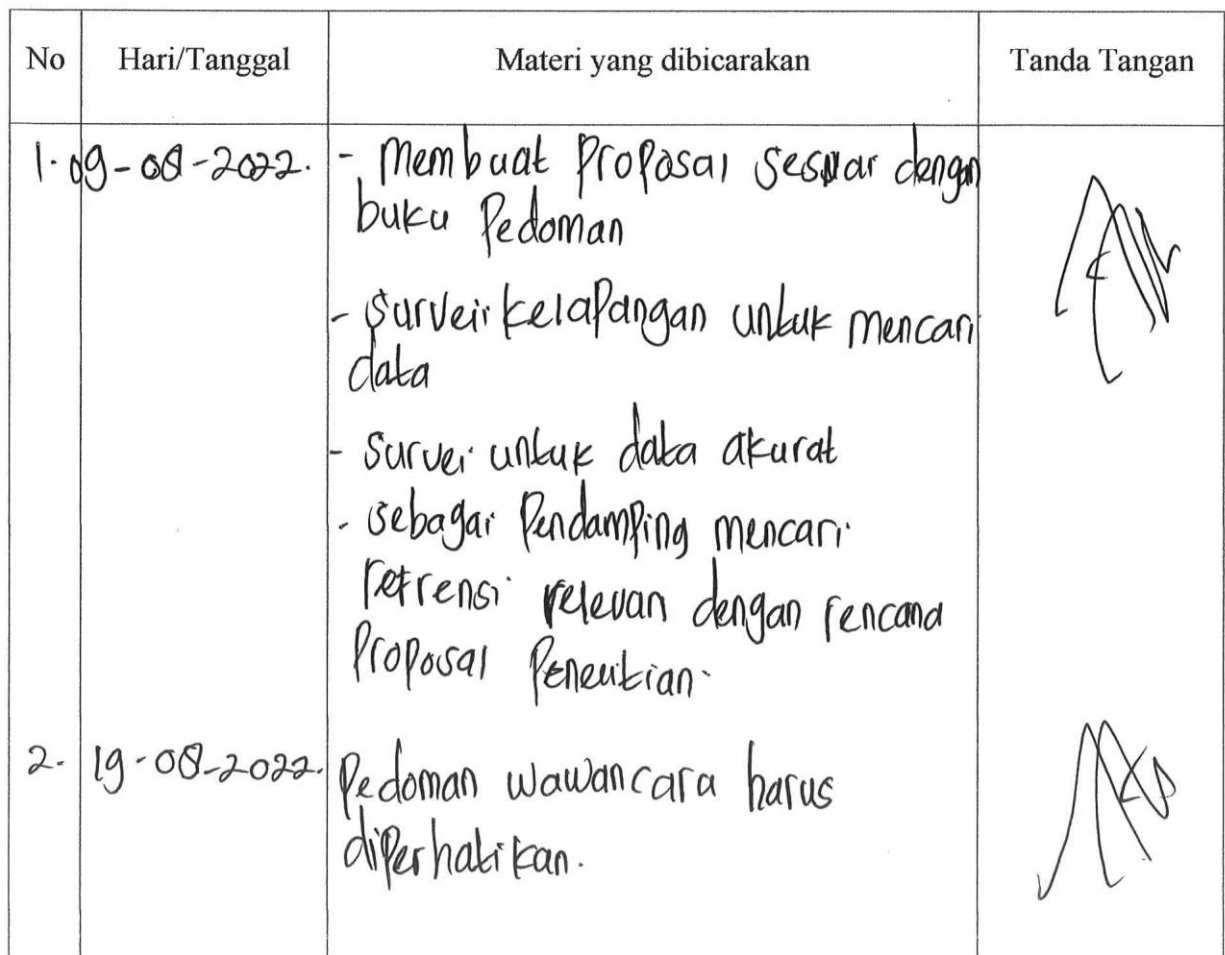 No Hari/Tanggal Materi yang dibicarakan Tanda Tangan
1. 09-08-2022. - Membuat Proposal sesuai dengan
buku Pedoman
- Survei kelapangan untuk mencari
data
- Survei untuk data akurat
- Sebagai Pendamping mencari
refrensi relevan dengan rencana
Proposal Penelitian.
2. 19-08-2022. Pedoman wawancara harus
diperhatikan.